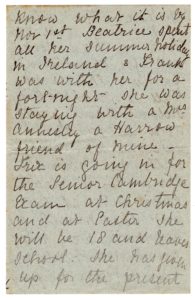 know what it is by
Nov 1st Beatrice spent
all her summer holiday
in Ireland & Frank
was with her for a
fortnight she was
staying with a Mrs
Annesley a Harrow
friend of mine -
is going in for
the Senior Cambridge
Exam at Christmas
and at Easter she
will be 18 and leaves
school. She has given
up for the present